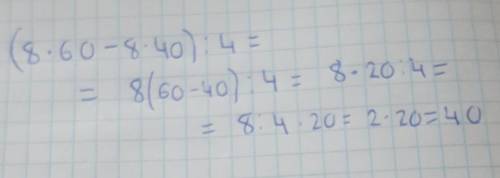 (8·60-8·40):4=
= 8(60-40):4= 8·20:4=
= 8:4·20=2·20=40